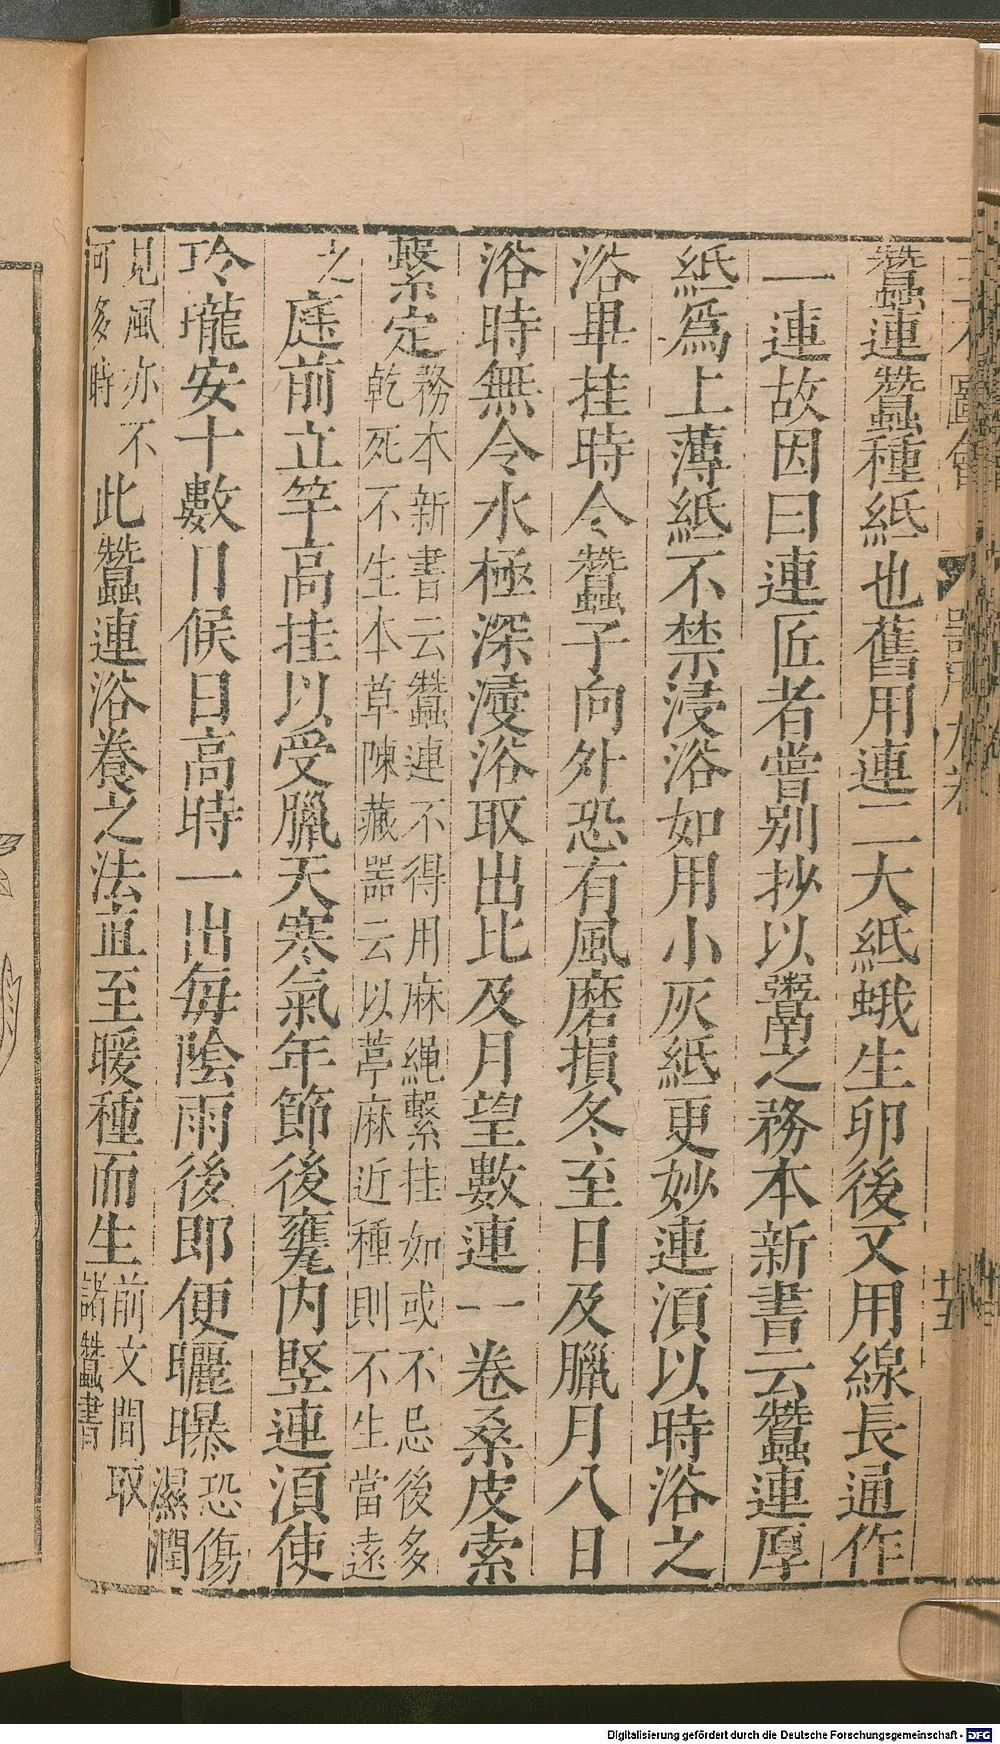 蠶連蠶種紙也舊用連二大紙蛾生卵後又用線長通作
一連故因曰連匠者嘗别抄以鬻之務本新書云蠶連厚
紙爲上薄紙不禁浸浴如用小灰紙更妙連湏以時浴之
浴畢挂時令蠶子向外恐有風磨損冬至日及臘月八日
浴時無令水極深浸浴取出比及月望數連一卷桑皮索
繫定務本新書云蠶連不得用麻繩繫挂如或不忌後多
乾死不生本草陳藏器云以苧麻近種則不生當遠
之庭前立竿高挂以受臘天寒氣年節後甕内竪連湏使
玲瓏安十數日候日高時一出每陰雨後即便曬曝恐傷
濕潤
見風亦不
可多時此蠶連浴養之法直至暖種而生前文間取
諸蠶書
三才圖會
器用九卷
廿五
Digitalisierung gefördert durch die Deutsche Forschungsgemeinschaft - DFG